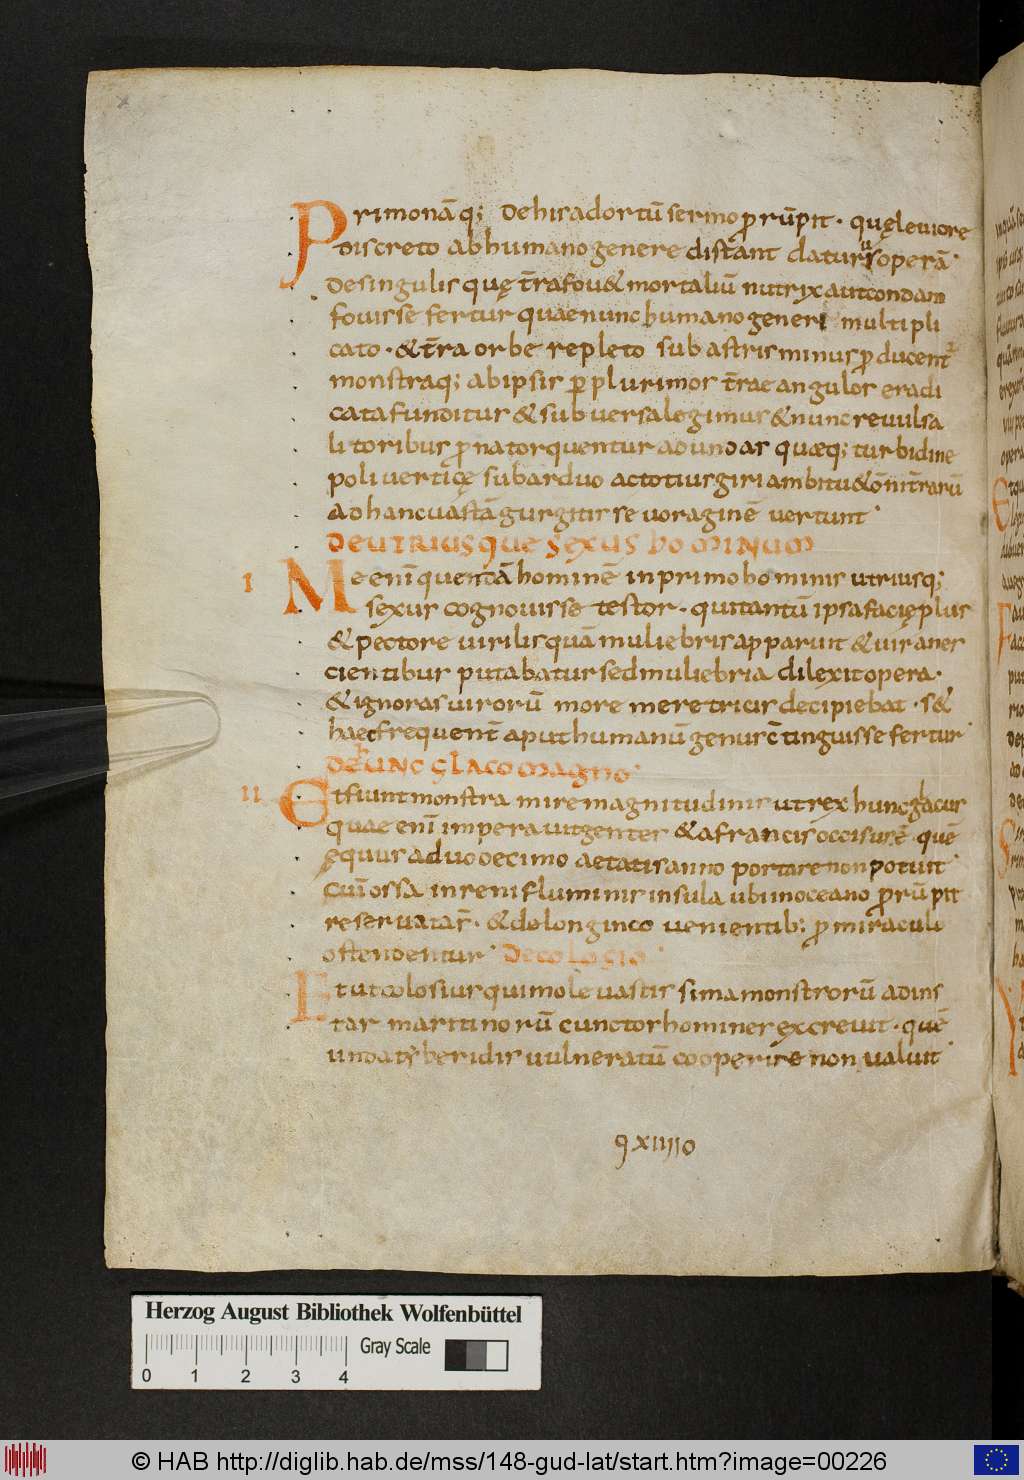 Primonāq; dehisadortū sermoprūpit · quęleuiore
discreto abhumanogenere distant datururusoperā ·
desingulis quę t̄rafou& mortaliū nutrixautcondam
fouisse fertur quaenunchumanogeneri multipli
cato · & t̄ra orbe repleto sub astris minus ꝓducent²
monstraq; abipsis ꝑplurimos t̄rae angulos eradi
catafunditur & subuersalegimus & nuncreuulsa
litoribus ꝓnatorquentur adundas quæq; turbidine
poliuerticę subarduo actotiusgiriambitu&ōnīt̄rarū
adhancuastāgurgitis se uoraginē uertunt ·
DEUTRIUSQUE SEXUS HOMINUM
I Me enī quendā hominē inprimo hominis utriusq;
sexus cognouisse testor · quitantū ipsafacięplus
& pectore uirilisquāmuliebrisapparuit & uiranes
cientibus putabatursedmuliebria dilexitopera ·
& ignorasuirorū more meretricis decipiebat · s&
haecfrequent̄ aputhumanū genusc̄tinguisse fertur ·
DEHUNC GLACO MAGNO ·
II Etfiuntmonstra miremagnitudinis utrex huncglacus
quae enī imperauitgentes & afrancisoccisusē · quē
ęquus aduodecimo aetatisanno portarenonpotuit ·
Cuīossa inreni fluminis insula ubiinoceano ꝓrūpit
reseruatas̄ · & delonginco uenientib; ꝓmiraculo
ostendentur · DECOLOSIO
Etutcolosiusquimole uastissimamonstrorū adins
tar maritinorū cunctoshomines excreuit · quē
undatyberidis uulneratū cooperire non ualuit ·
9 xiiiio
Herzog August Bibliothek Wolfenbüttel
Gray Scale
0 1 2 3 4
© HAB http://diglib.hab.de/mss/148-gud-lat/start.htm?image=00226